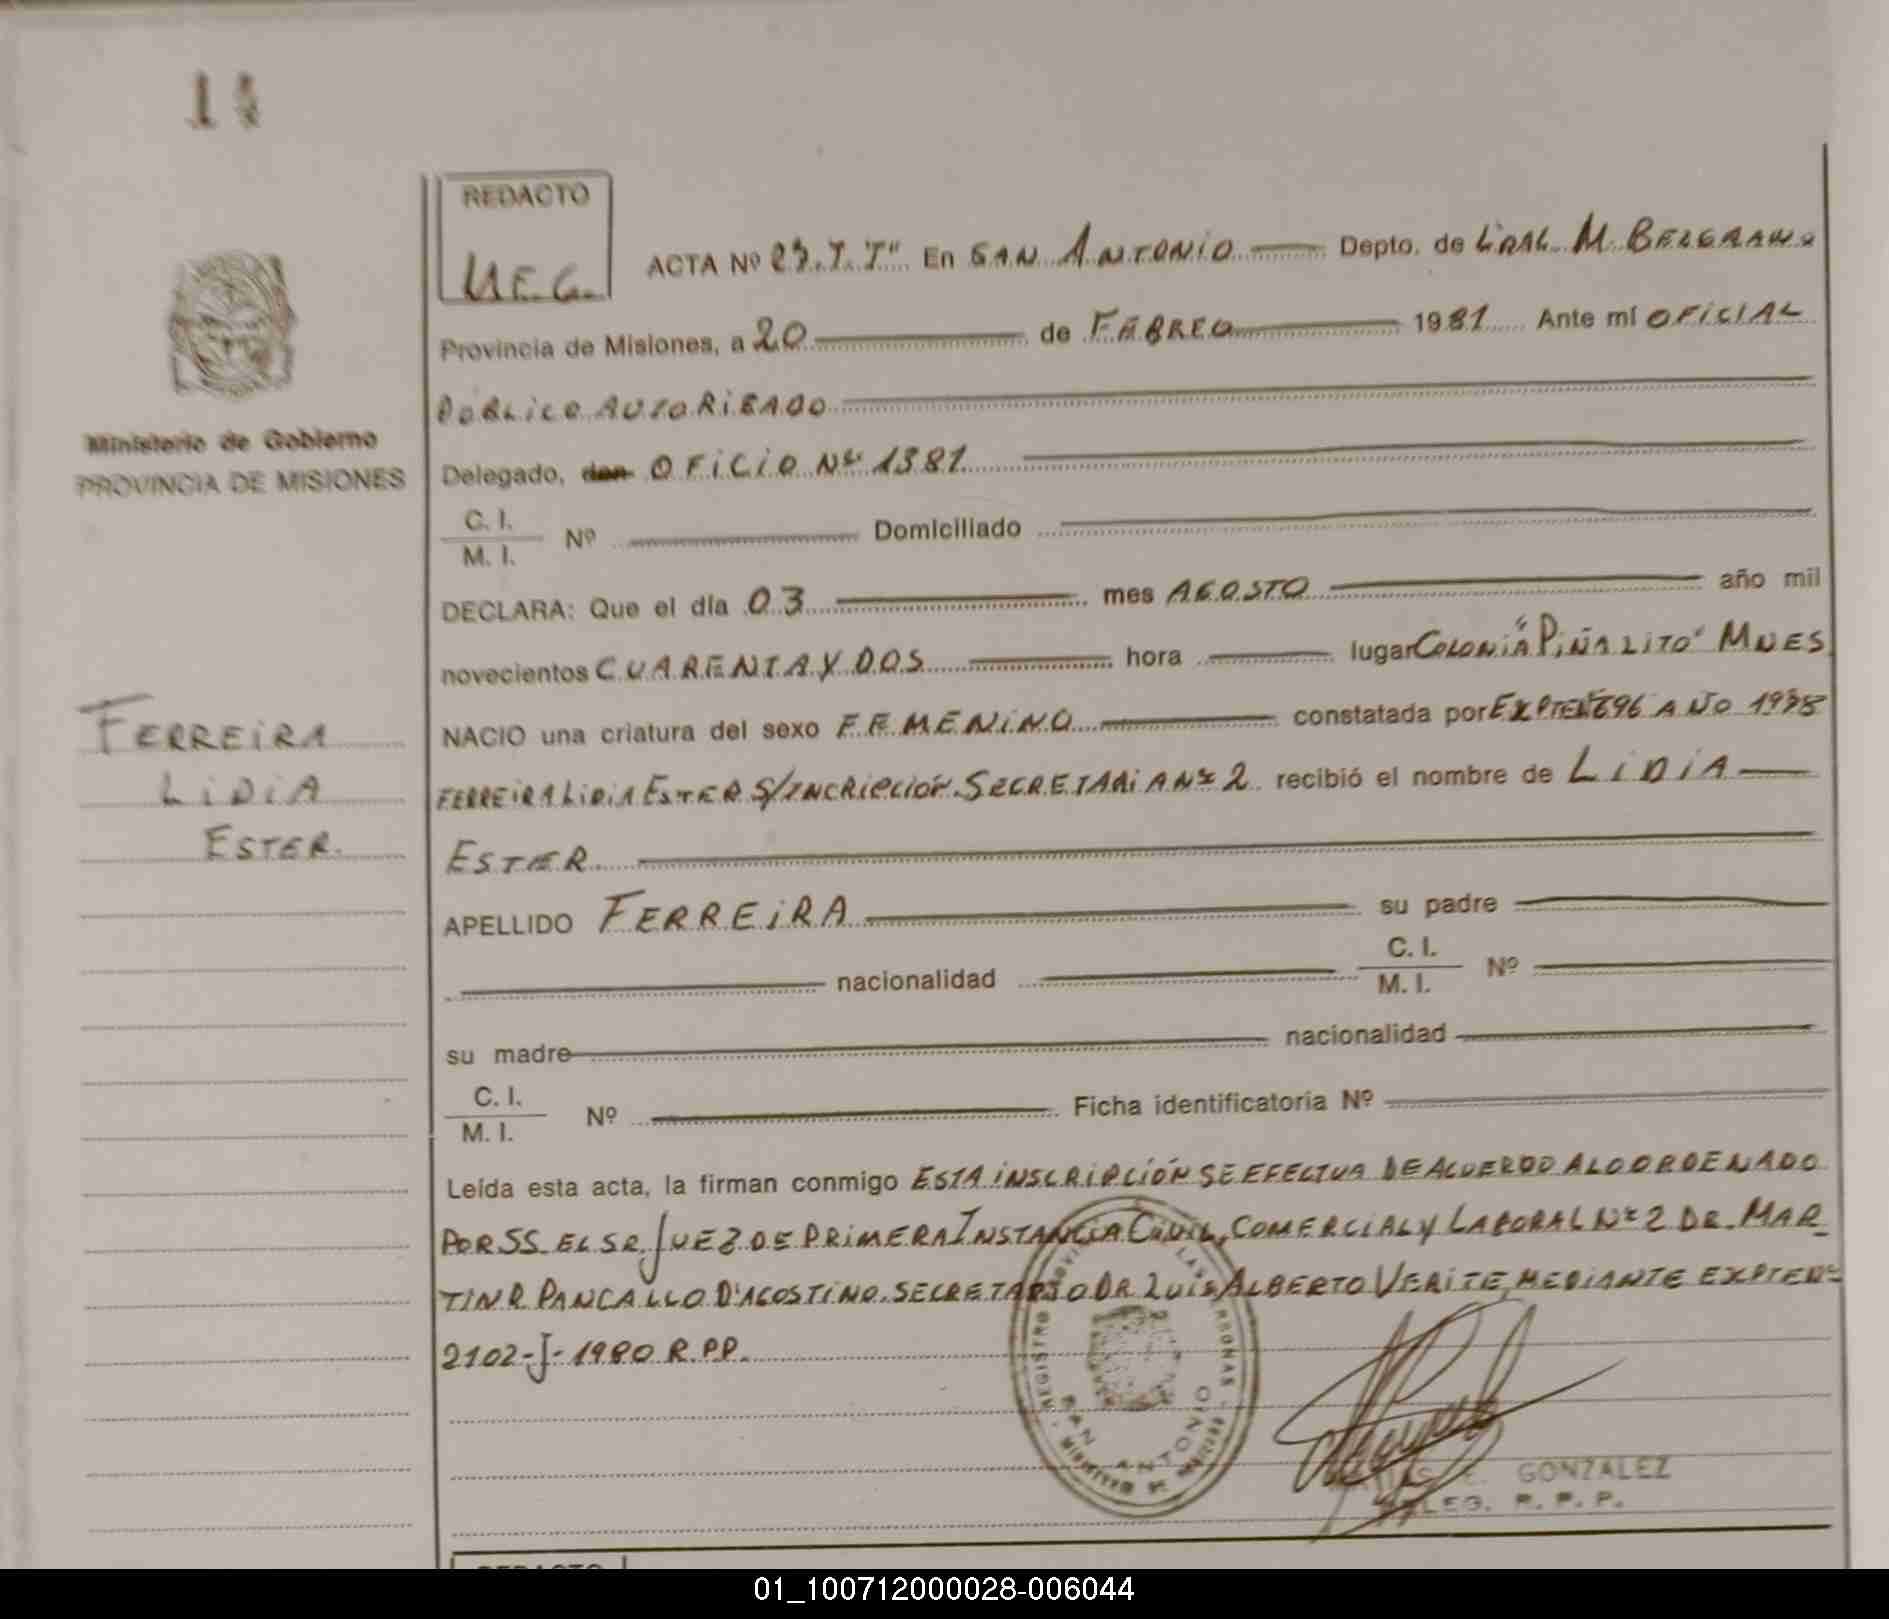 REDACTO
ACTA Nº 23 T. I" En SAN ANTONIO Depto. de GRAL. M. BELGRANO
Provincia de Misiones, a 20 de FEBRERO 1981 Ante mí OFICIAL
PUBLICO AUTORIZADO
Ministerio de Gobierno
PROVINCIA DE MISIONES
Delegado, don OFICIO Nº 1381
C. I.
M. I.
Nº Domiciliado
DECLARA: Que el día 03 mes AGOSTO año mil
novecientos CUARENTA Y DOS hora lugar COLONIA "PIÑALITO" MNES
NACIO una criatura del sexo FEMENINO constatada por EXPTE Nº 696 AÑO 1978
FERREIRA LIDIA ESTER S/INCRIPCIÓN. SECRETARIA Nº 2 recibió el nombre de LIDIA
ESTER
FERREIRA
LIDIA
ESTER.
APELLIDO FERREIRA su padre
nacionalidad
C. I.
M. I.
Nº
su madre nacionalidad
C. I.
M. I.
Nº Ficha identificatoria Nº
Leída esta acta, la firman conmigo ESTA INSCRIPCIÓN SE EFECTUA DE ACUERDO A LO ORDENADO
POR SS. EL SR. JUEZ DE PRIMERA INSTANCIA CIVIL, COMERCIAL Y LABORAL Nº 2 DR. MAR
TIN R. PANCALLO D'AGOSTINO. SECRETARIO DR LUIS ALBERTO VERITE, MEDIANTE EXPTE Nº
2102-J-1980 R.P.P.
SAN ANTONIO
GONZALEZ
DELEG. R. P. P.
01_100712000028-006044